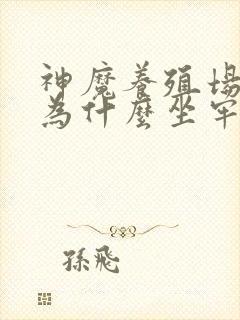 神魔養殖場
為什麼坐牢
孫飛